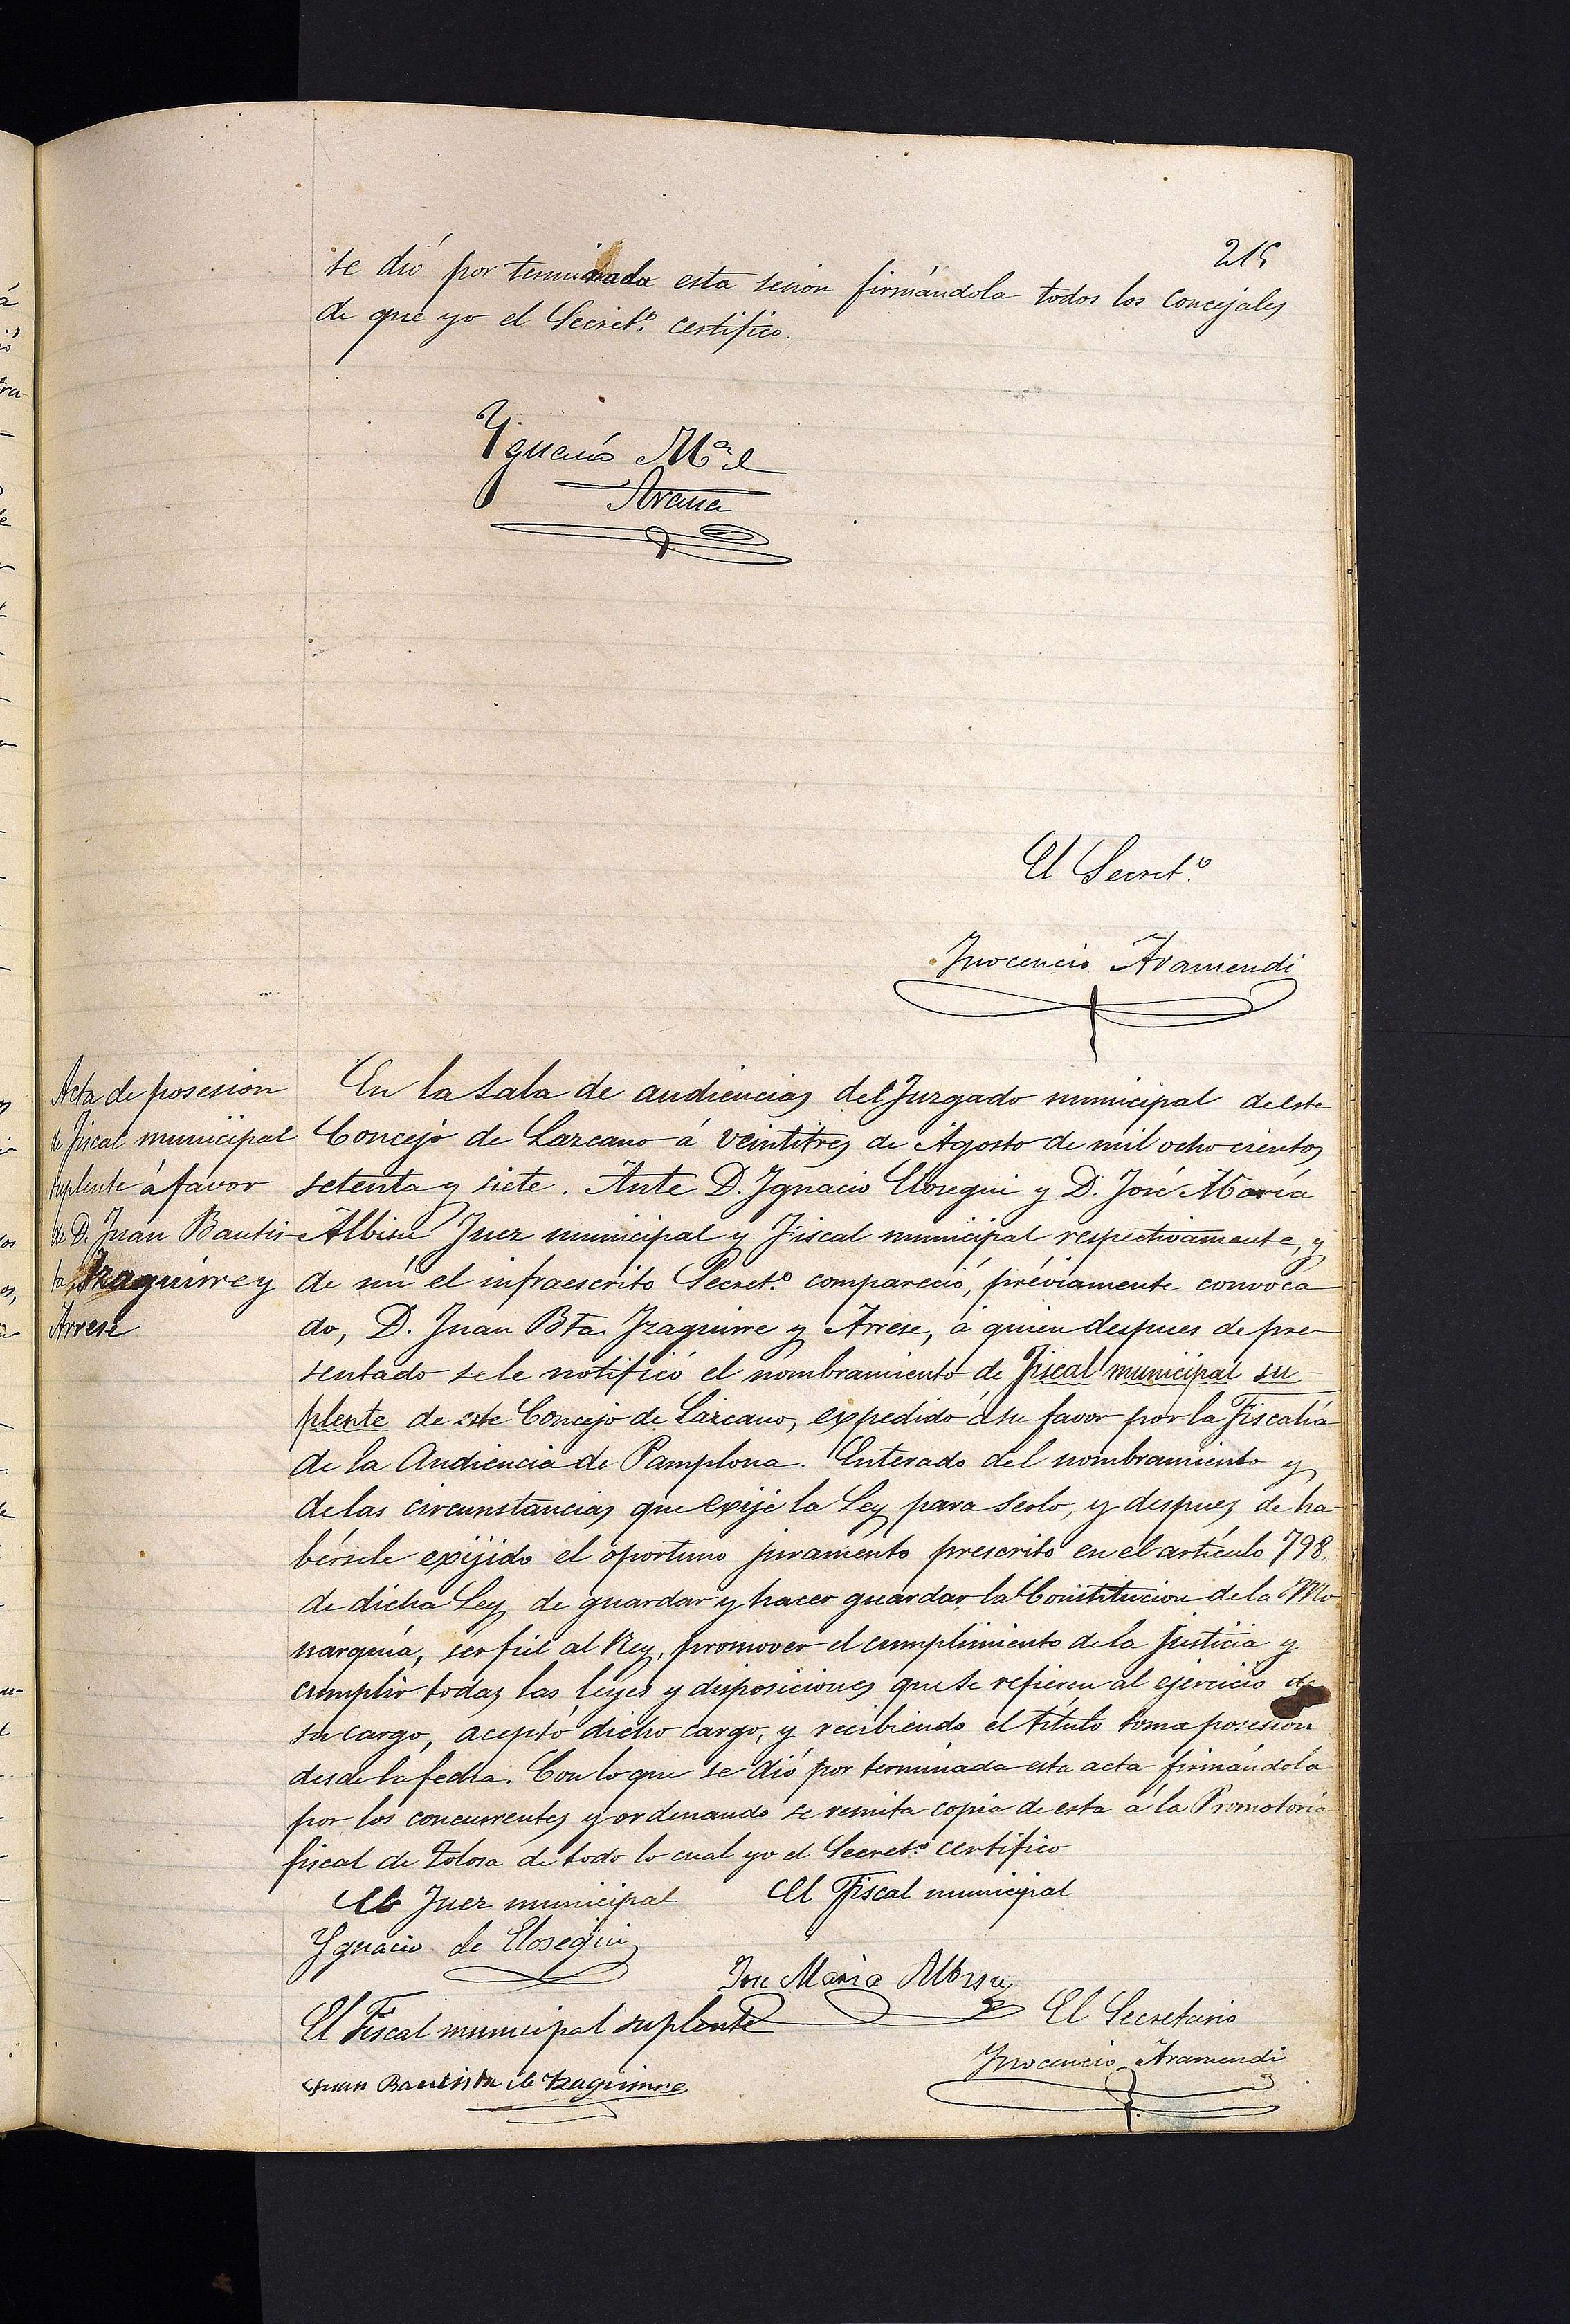 215
se dió por terminada esta sesion firmándola todos los concejales
de que yo el Secret.º certifico.
Ygnacio M.ª
Arana
El Secret.º
Inocencio Aramendi
Acta de posesion
de fiscal municipal
suplente á favor
de D. Juan Bautis-
ta Izaguirre y
Arrese
En la Sala de audiencias del Juzgado municipal de este
Concejo de Lazcano á veintitres de Agosto de mil ochocientos
setenta y siete. Ante D. Ignacio Elosegui y D. José María
Albisu Juez municipal y Fiscal municipal respectivamente, y
de mí el infraescrito Secret.º compareció, préviamente convoca
do, D. Juan Bta. Izaguirre y Arrese, á quien despues de pre-
sentado se le notificó el nombramiento de fiscal municipal su-
plente de este Concejo de Lazcano, expedido á su favor por la Fiscalía
de la Audiencia de Pamplona. Enterado del nombramiento y
de las circunstancias que exije la Ley para serlo, y despues de ha-
bérsele exijido el oportuno juramento prescrito en el artículo 798.
de dicha Ley de guardar y hacer guardar la Constitucion de la Mo
narquía, ser fiel al Rey, promover el cumplimiento de la justicia y
cumplir todas las leyes y disposiciones que se refieren al ejercicio de
su cargo, aceptó dicho cargo, y recibiendo el título toma posesion
desde la fecha. Con lo que se dió por terminada esta acta firmándola
por los concurrentes y ordenando se remita copia de esta á la Promotoria
fiscal de Tolosa de todo lo cual yo el Secret.º certifico
El Juez municipal
El Fiscal municipal
Ygnacio de Elosegui
Jose Maria Albisu
El Fiscal municipal suplente
El Secretario
Juan Bautista de Izaguirre
Inocencio Aramendi